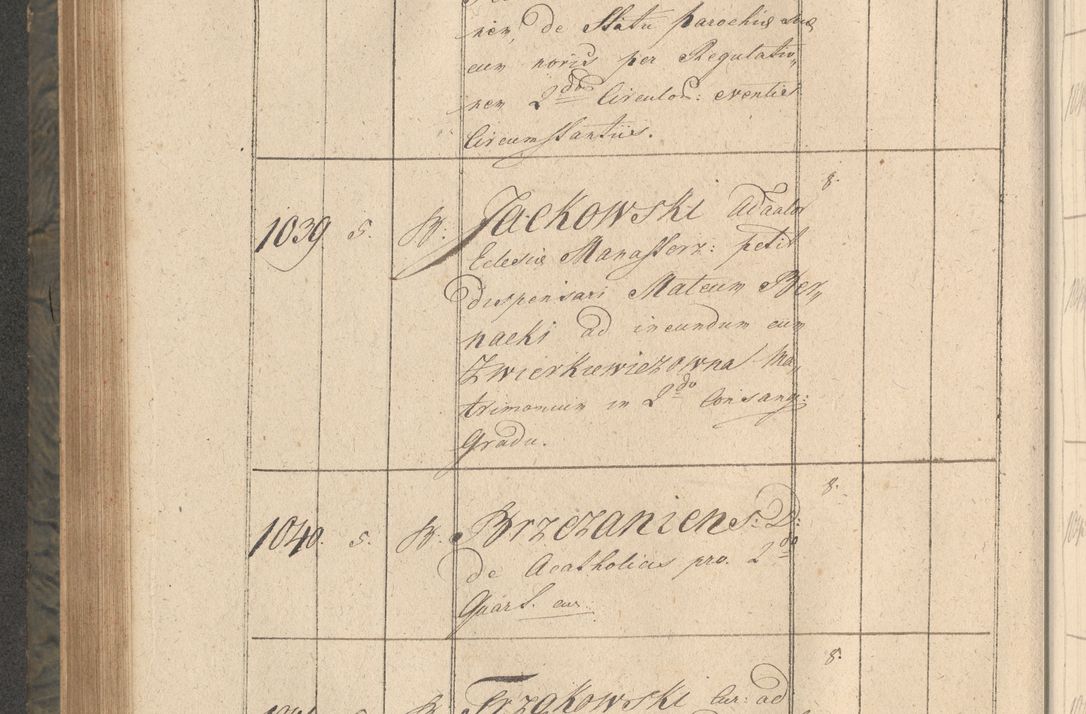 nem, de Statu parochiæ suæ
cum noviis per Regulatio„
nem 2do Circulor: eventis
Circumstantiis.
8.
1039 S. W: Jackowski Adaalor
Eclesiæ Manasterz: petit
dispensari Mateum Ber„
nacki ad ineundum cum
Zwierkiewiczowna Ma„
trimonium in 2do Consang:
Gradu.
8.
1040. S. W. Brzezaniens: D:
de Acatholicis pro. 2do
Quart. cur.
8.
Trzakowski Cur: ad